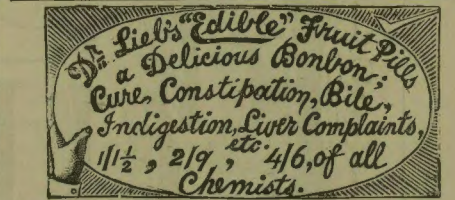 Dr. Lieb's "Edible" Fruit Pills
a Delicious Bonbon;
Cure, Constipation, Bile,
Indigestion, Liver Complaints,
1/1½, 2/9, etc. 4/6, of all
Chemists.